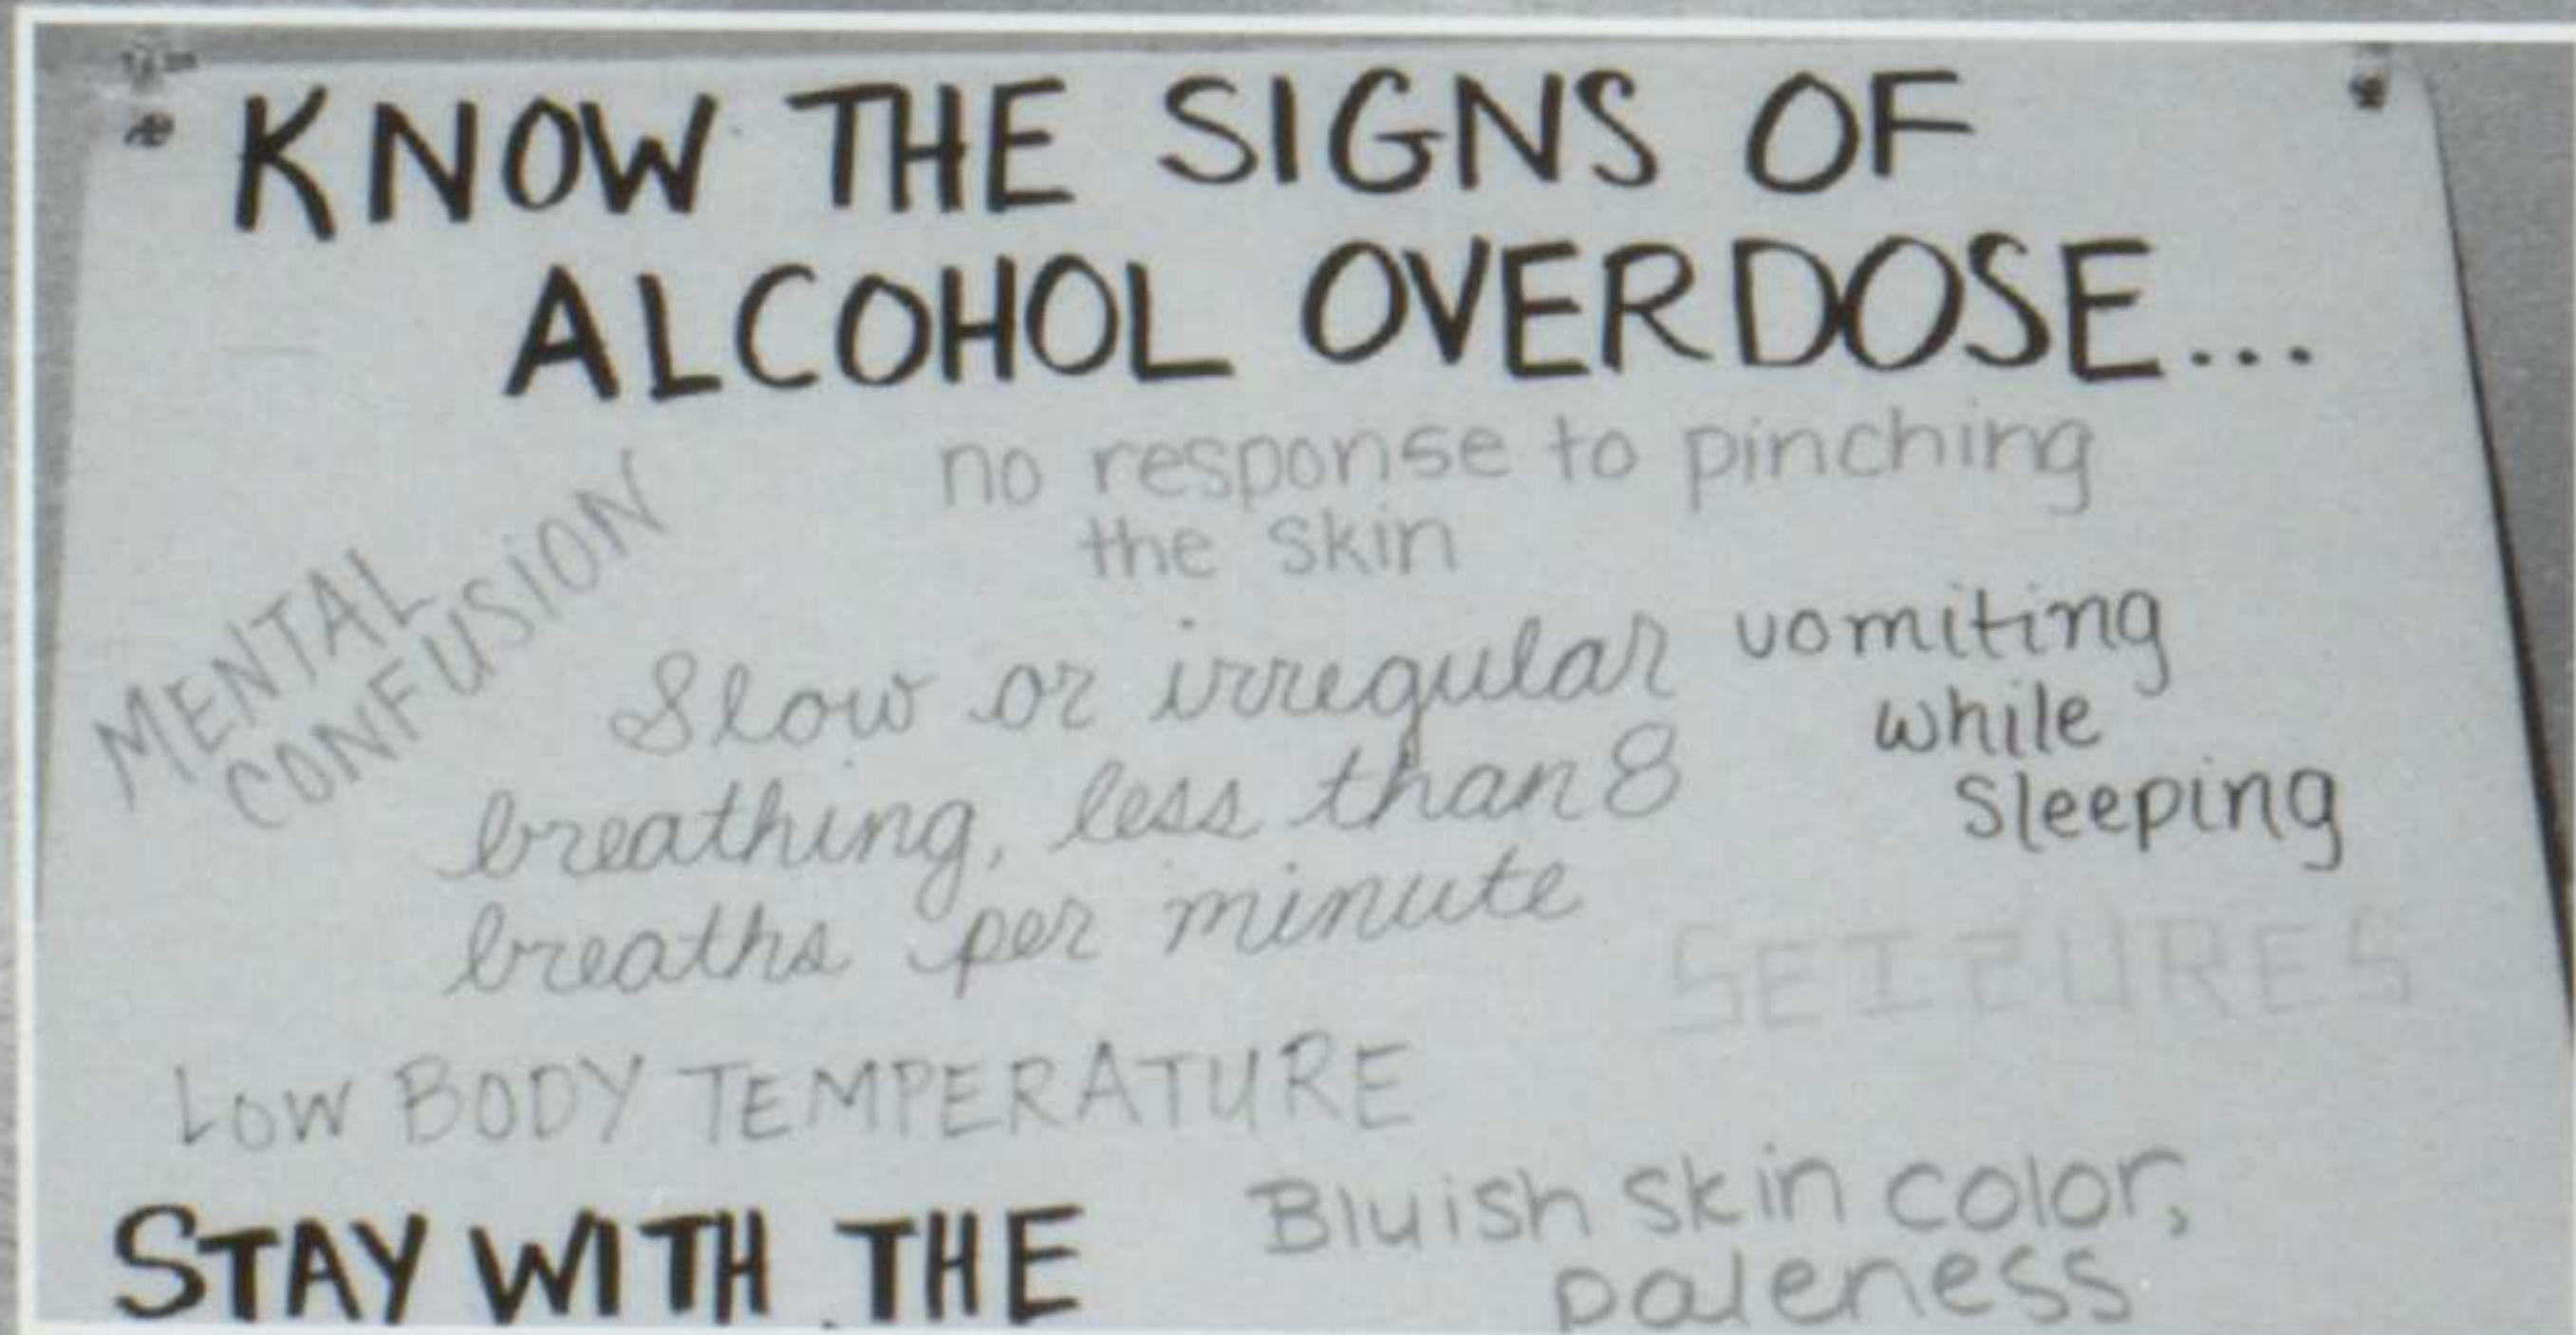 KNOW THE SIGNS OF
ALCOHOL OVERDOSE...
no response to pinching
the skin
MENTAL
CONFUSION
Slow or irregular
breathing, less than 8
breaths per minute
vomiting
while
sleeping
SEIZURES
LOW BODY TEMPERATURE
Bluish skin color,
paleness
STAY WITH THE